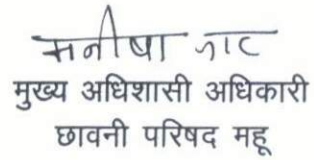 मनीषा जाट
मुख्य अधिशासी अधिकारी
छावनी परिषद महू